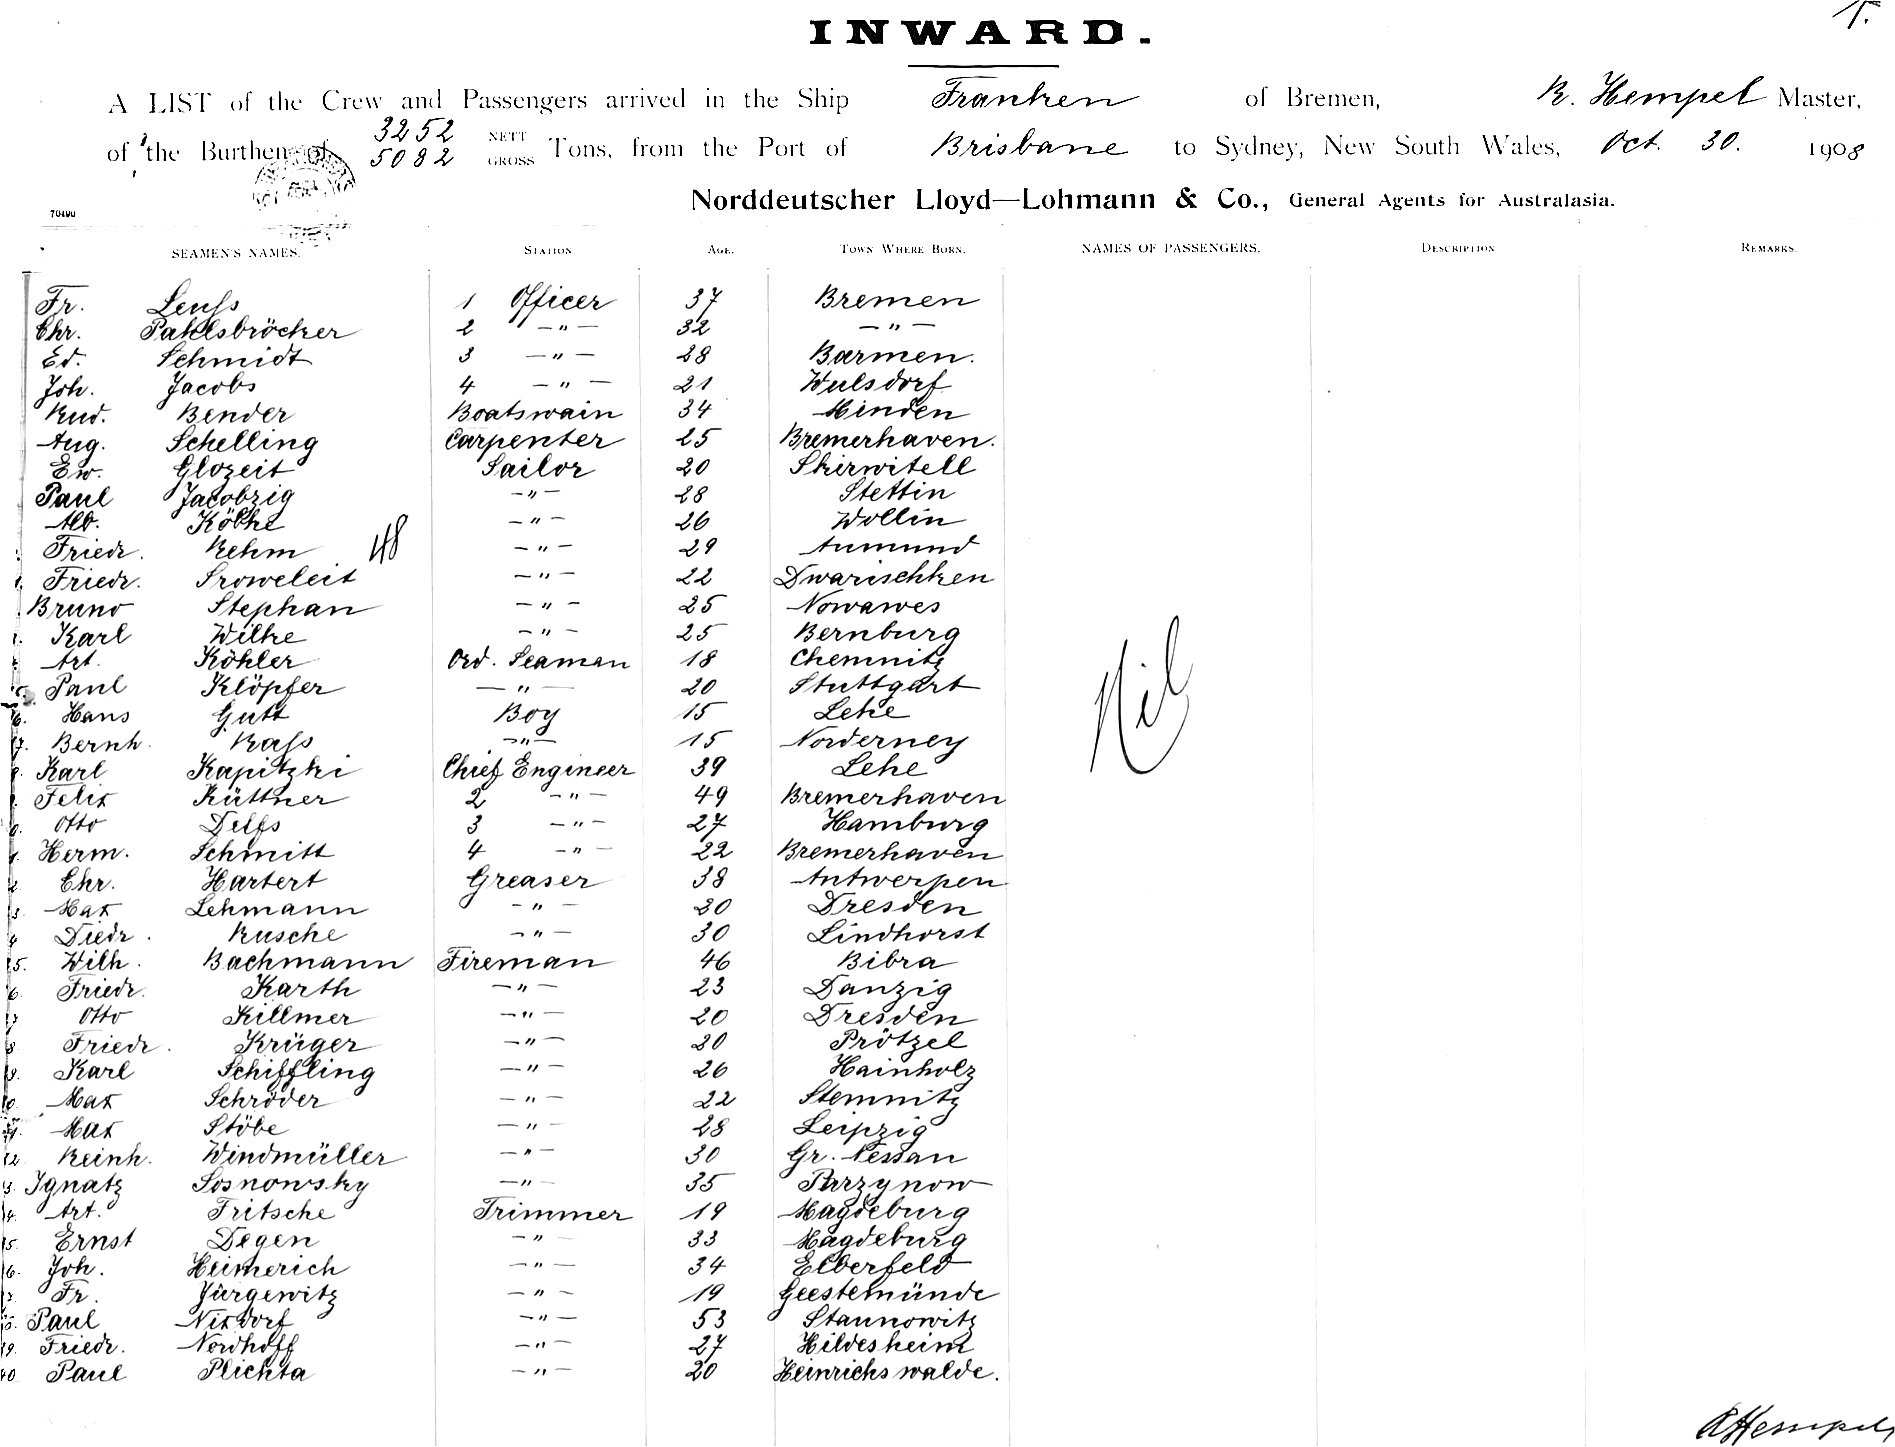 1.
INWARD.
A LIST of the Crew and Passengers arrived in the Ship Franken of Bremen, R. Hempel Master,
of the Burthen of 3252 NETT 5082 GROSS Tons, from the Port of Brisbane to Sydney, New South Wales, Oct. 30. 1908
Norddeutscher Lloyd—Lohmann & Co., General Agents for Australasia.
70490
SEAMEN'S NAMES. STATION AGE. TOWN WHERE BORN. NAMES OF PASSENGERS. DESCRIPTION REMARKS.
Fr. Leuss 1 Officer 37 Bremen
Chr. Pahlsbröcker 2 —"— 32 —"—
Ed. Schmidt 3 —"— 28 Barmen.
Joh. Jacobs 4 —"— 21 Wulsdorf
Rud. Bender Boatswain 34 Minden
Aug. Schelling Carpenter 25 Bremerhaven.
Ew. Glozeit Sailor 20 Skirwitell
Paul Jacobzig —"— 28 Stettin
Alb. Köbke —"— 26 Wollin
Friedr. Rehm 48 —"— 29 Aumund
Friedr. Sroweleit —"— 22 Dwarischken
Bruno Stephan —"— 25 Nowawes
Karl Wilke —"— 25 Bernburg
Art. Köhler Ord. Seaman 18 Chemnitz
Paul Klöpfer —"— 20 Stuttgart
16. Hans Gutt Boy 15 Lehe
17. Bernh. Rass —"— 15 Norderney
Karl Kapitzki Chief Engineer 39 Lehe
Nil
Felix Küttner 2 —"— 49 Bremerhaven
Otto Delfs 3 —"— 27 Hamburg
Herm. Schmitt 4 —"— 22 Bremerhaven
Chr. Hartert Greaser 38 Antwerpen
Max Lehmann —"— 30 Dresden
Diedr. Rusche —"— 30 Lindhorst
25. Wilh. Bachmann Fireman 46 Bibra
Friedr. Karth —"— 23 Danzig
Otto Killmer —"— 20 Dresden
Friedr. Krüger —"— 30 Prötzel
Karl Schiffling —"— 26 Hainholz
Max Schröder —"— 22 Stemnitz
Max Stöbe —"— 28 Leipzig
32 Reinh. Windmüller —"— 30 Gr. Nessau
Ignatz Sosnowsky —"— 35 Parzynow
Art. Fritsche Trimmer 19 Magdeburg
35. Ernst Degen —"— 33 Magdeburg
36. Joh. Heimerich —"— 34 Elberfeld
Fr. Jürgewitz —"— 19 Geestemünde
Paul Nixdorf —"— 53 Stannowitz
39. Friedr. Nordhoff —"— 27 Hildesheim
40. Paul Plichta —"— 20 Heinrichswalde.
R Hempel,